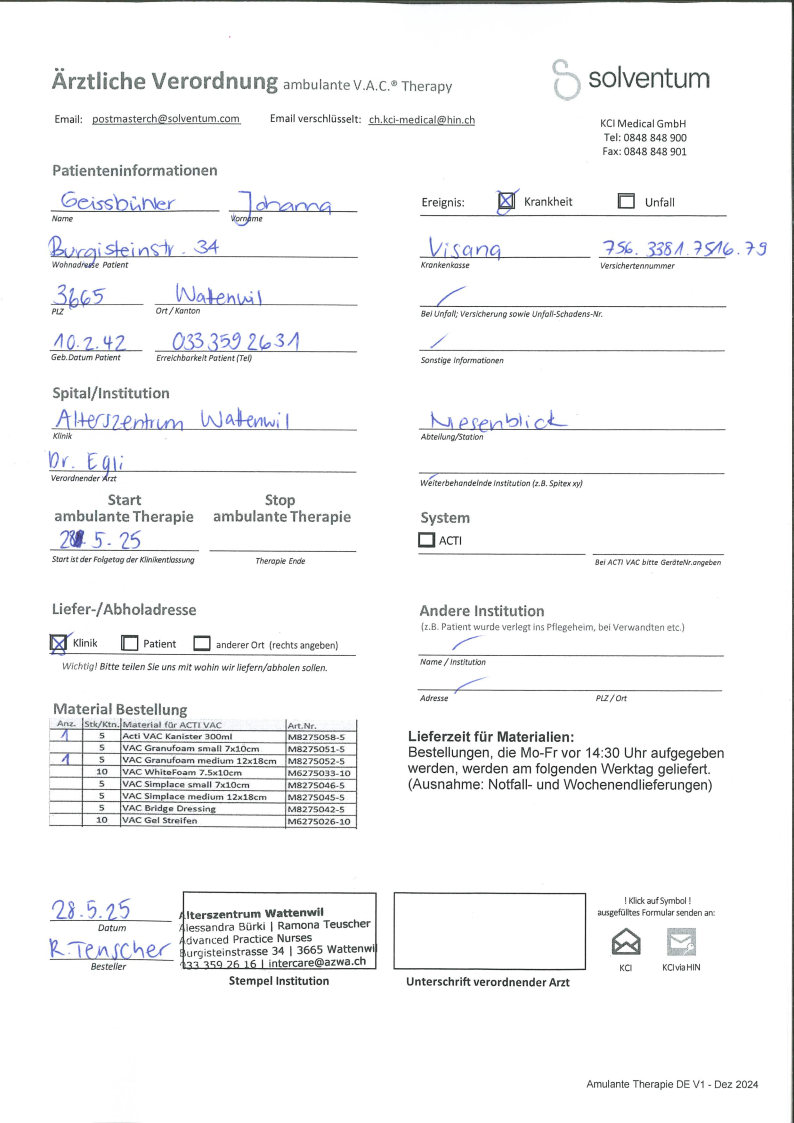 Ärztliche Verordnung ambulante V.A.C.® Therapy
solventum
Email: postmasterch@solventum.com Email verschlüsselt: ch.kci-medical@hin.ch
KCI Medical GmbH
Tel: 0848 848 900
Fax: 0848 848 901
Patienteninformationen
Geissbühler Johanna
Name Vorname
Ereignis: Krankheit Unfall
Burgisteinstr. 34
Wohnadresse Patient
Visana 756.3381.7516.79
Krankenkasse Versichertennummer
3665 Watenwil
PLZ Ort / Kanton
Bei Unfall; Versicherung sowie Unfall-Schadens-Nr.
10.2.42 033 359 26 31
Geb.Datum Patient Erreichbarkeit Patient (Tel)
Sonstige Informationen
Spital/Institution
Alterszentrum Wattenwil
Klinik
Niesenblick
Abteilung/Station
Dr. Egli
Verordnender Arzt
Weiterbehandelnde Institution (z.B. Spitex xy)
Start Stop
ambulante Therapie ambulante Therapie
28.5.25
Start ist der Folgetag der Klinikentlassung Therapie Ende
System
ACTI
Bei ACTI VAC bitte GeräteNr.angeben
Liefer-/Abholadresse
Klinik Patient anderer Ort (rechts angeben)
Wichtig! Bitte teilen Sie uns mit wohin wir liefern/abholen sollen.
Andere Institution
(z.B. Patient wurde verlegt ins Pflegeheim, bei Verwandten etc.)
Name / Institution
Adresse PLZ / Ort
Material Bestellung
Anz. Stk/Ktn. Material für ACTI VAC Art.Nr.
1 5 Acti VAC Kanister 300ml M8275058-5
5 VAC Granufoam small 7x10cm M8275051-5
1 5 VAC Granufoam medium 12x18cm M8275052-5
10 VAC WhiteFoam 7.5x10cm M6275033-10
5 VAC Simplace small 7x10cm M8275046-5
5 VAC Simplace medium 12x18cm M8275045-5
5 VAC Bridge Dressing M8275042-5
10 VAC Gel Streifen M6275026-10
Lieferzeit für Materialien:
Bestellungen, die Mo-Fr vor 14:30 Uhr aufgegeben
werden, werden am folgenden Werktag geliefert.
(Ausnahme: Notfall- und Wochenendlieferungen)
28.5.25
Datum
R. Teuscher
Besteller
Alterszentrum Wattenwil
Alessandra Bürki | Ramona Teuscher
Advanced Practice Nurses
Burgisteinstrasse 34 | 3665 Wattenwil
033 359 26 16 | intercare@azwa.ch
Stempel Institution
Unterschrift verordnender Arzt
! Klick auf Symbol !
ausgefülltes Formular senden an:
KCI KCI via HIN
Amulante Therapie DE V1 - Dez 2024